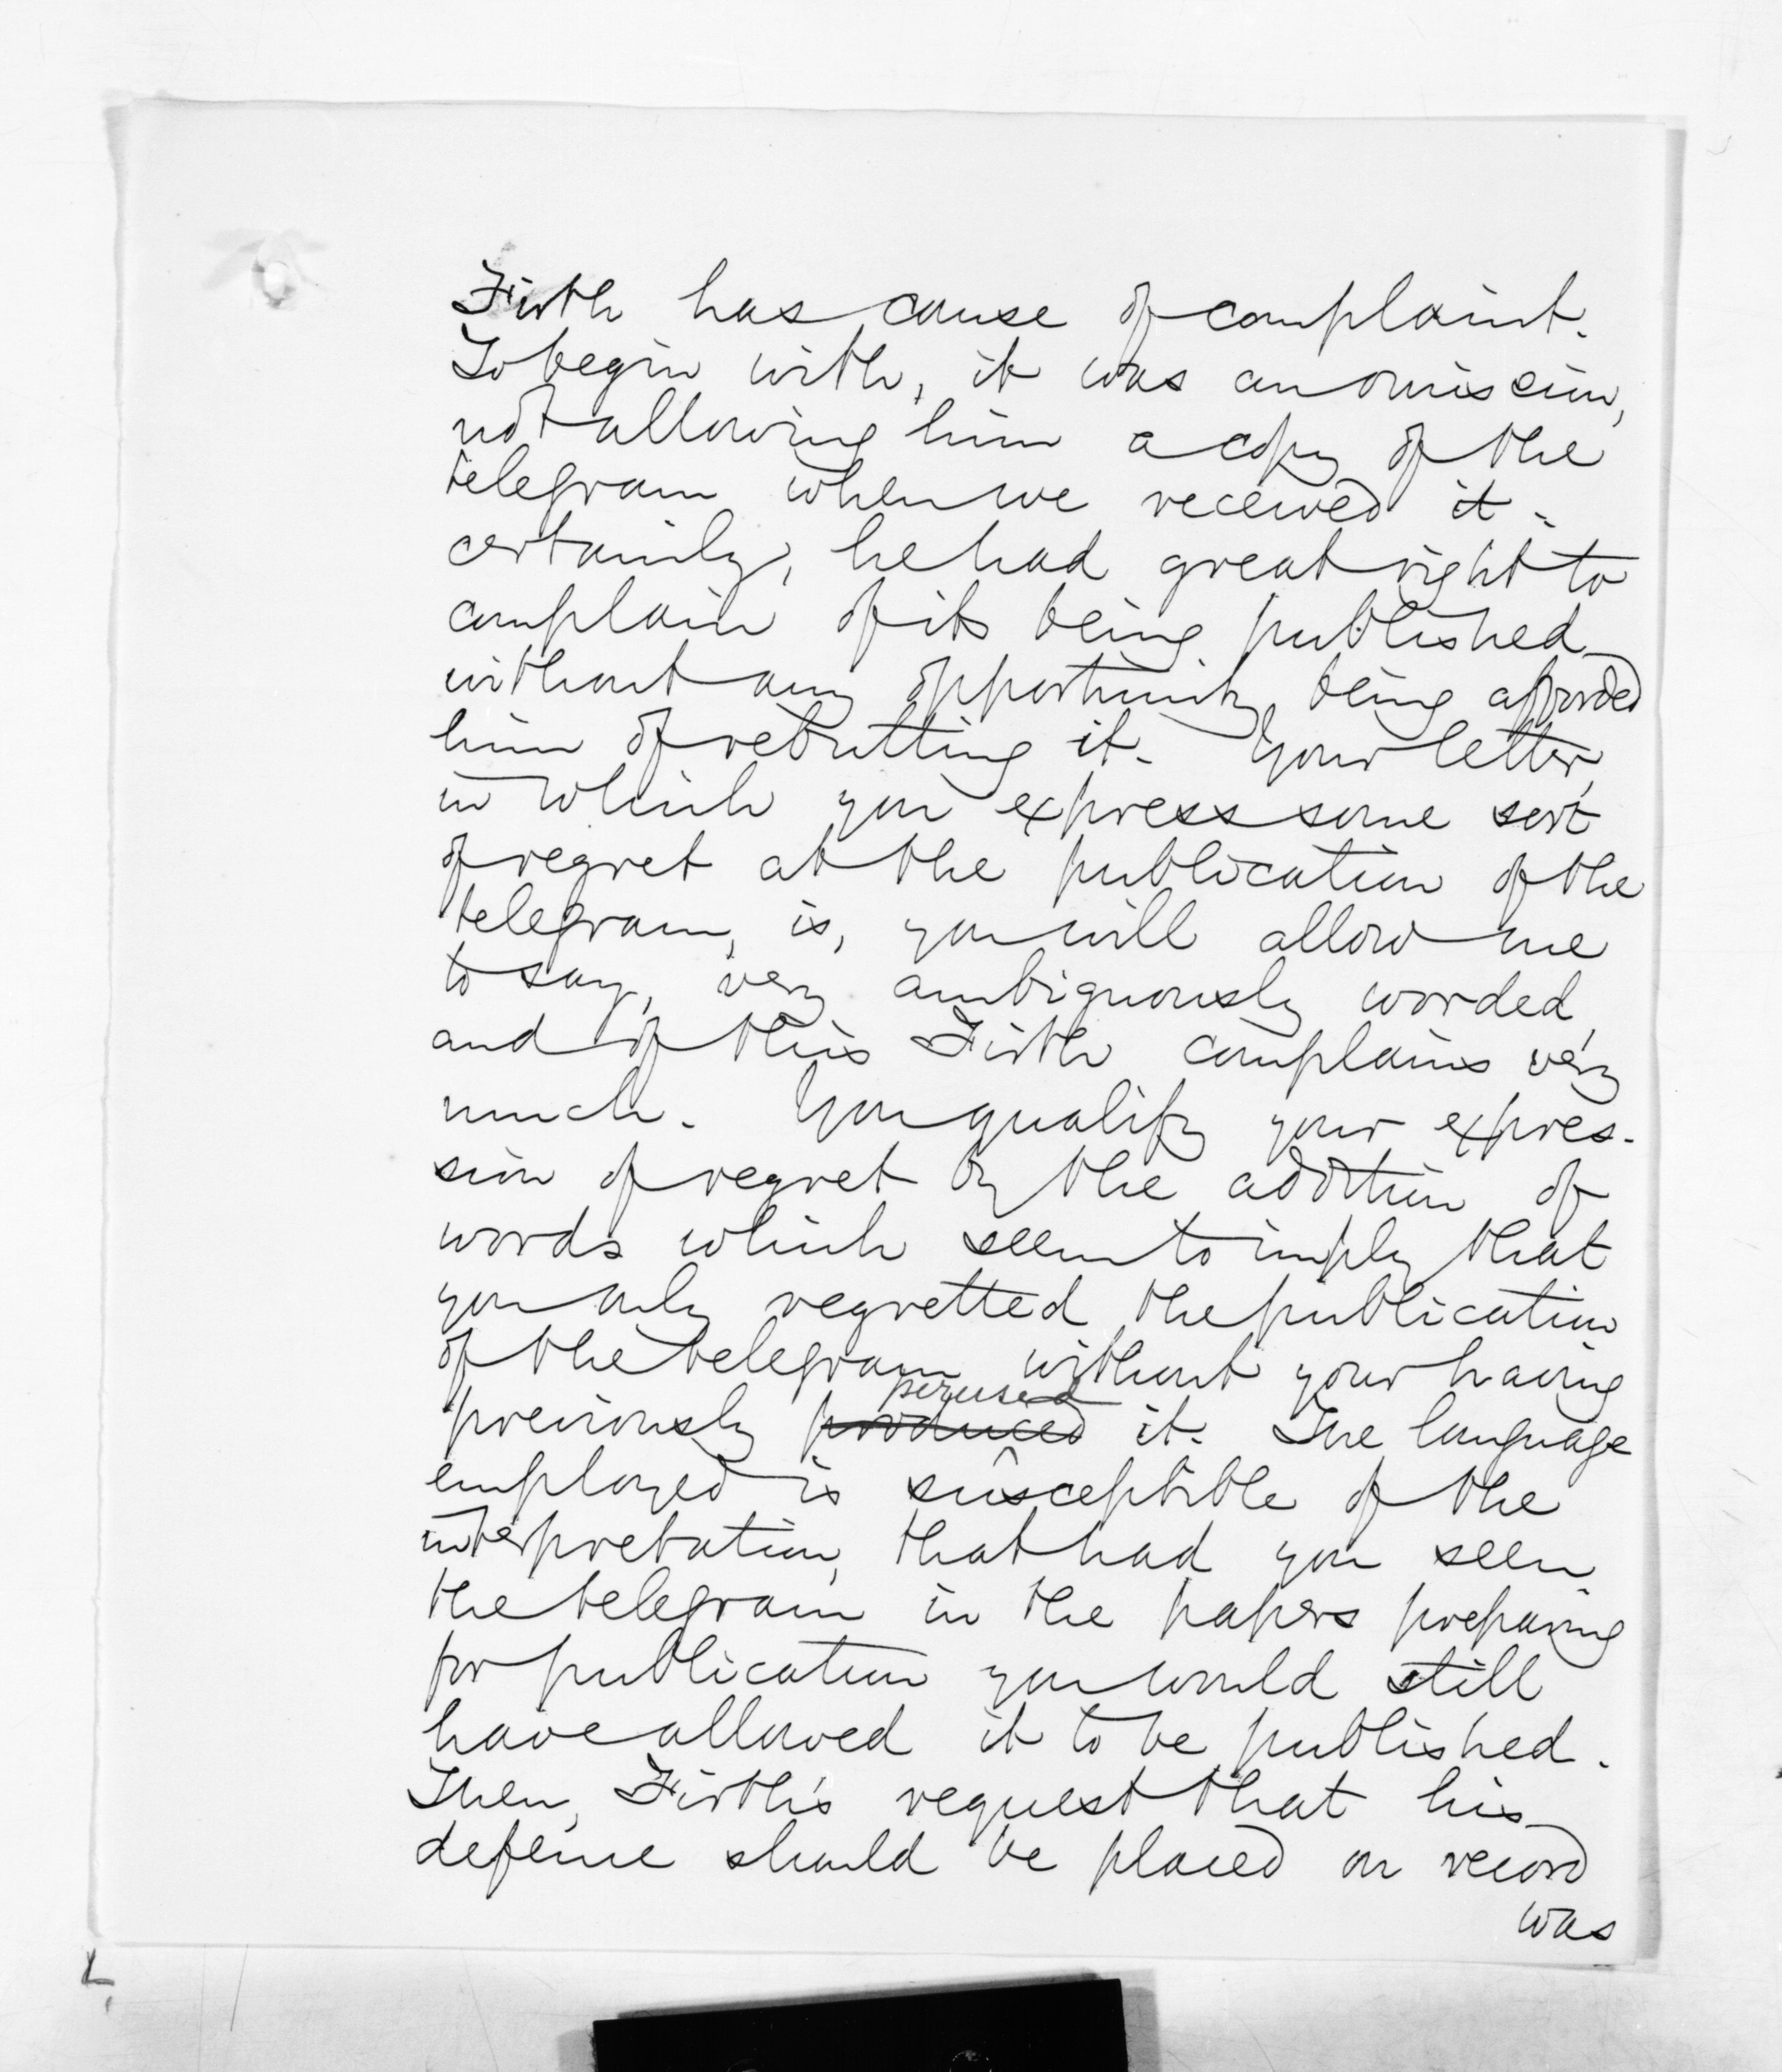 Firth has cause of complaint.
To begin with, it was an omission,
not allowing him a copy of the
telegram when we received it.
certainly, he had great right to
complain of its being published
without any opportunity being afforded
him of rebutting it. Your letter,
in which you express some sort
of regret at the publication of the
telegram, is, you will allow me
to say, very ambiguously worded,
and of this Firth complains very
much. You qualify your expres-
sion of regret by the addition of
words which seem to imply that
you only regretted the publication
of the telegram without your having
perused
previously produced it. The language
employed is susceptible of the
interpretation, that had you seen
the telegram in the papers preparing
for publication you would still
have allowed it to be published.
Then, Firth's request that his
defence should be placed on record
was